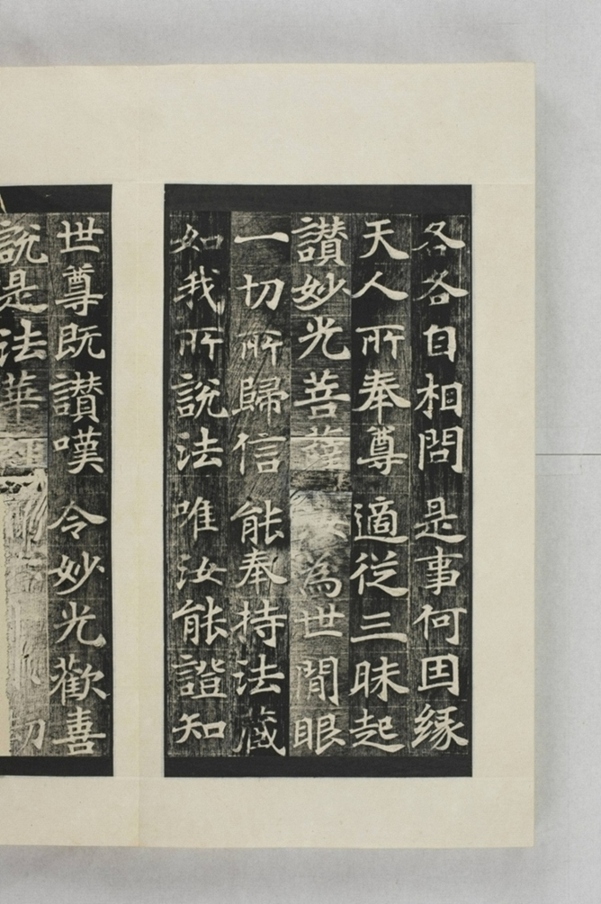 各各自相問 是事何因縁
天人所奉尊 適從三昧起
讃妙光菩薩 為世間眼
一切所歸信 能奉持法藏
如我所說法 唯汝能證知
世尊既讃嘆 令妙光歡喜
說是法華